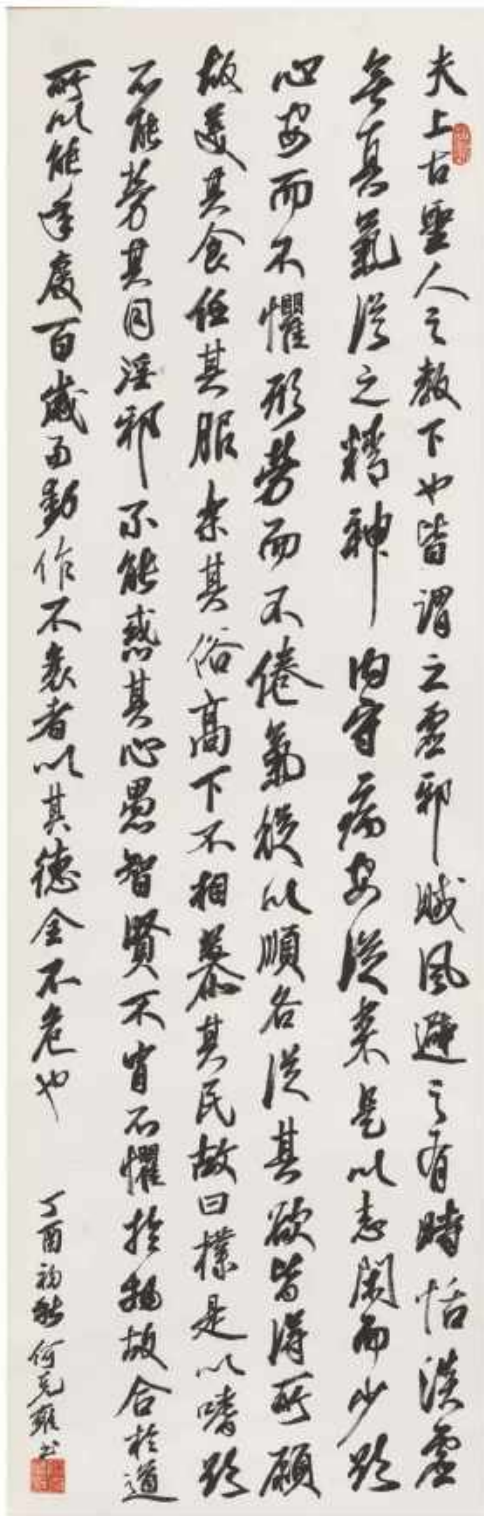 夫上古聖人之教下也皆謂之虛邪賊風避之有時恬淡虛
無真氣從之精神內守病安從來是以志閑而少欲
心安而不懼形勞而不倦氣從以順各從其欲皆得所願
故美其食任其服樂其俗高下不相慕其民故曰樸是以嗜欲
不能勞其目淫邪不能惑其心愚智賢不肖不懼於物故合於道
所以能年度百歲而動作不衰者以其德全不危也
丁酉初秋何克雍书